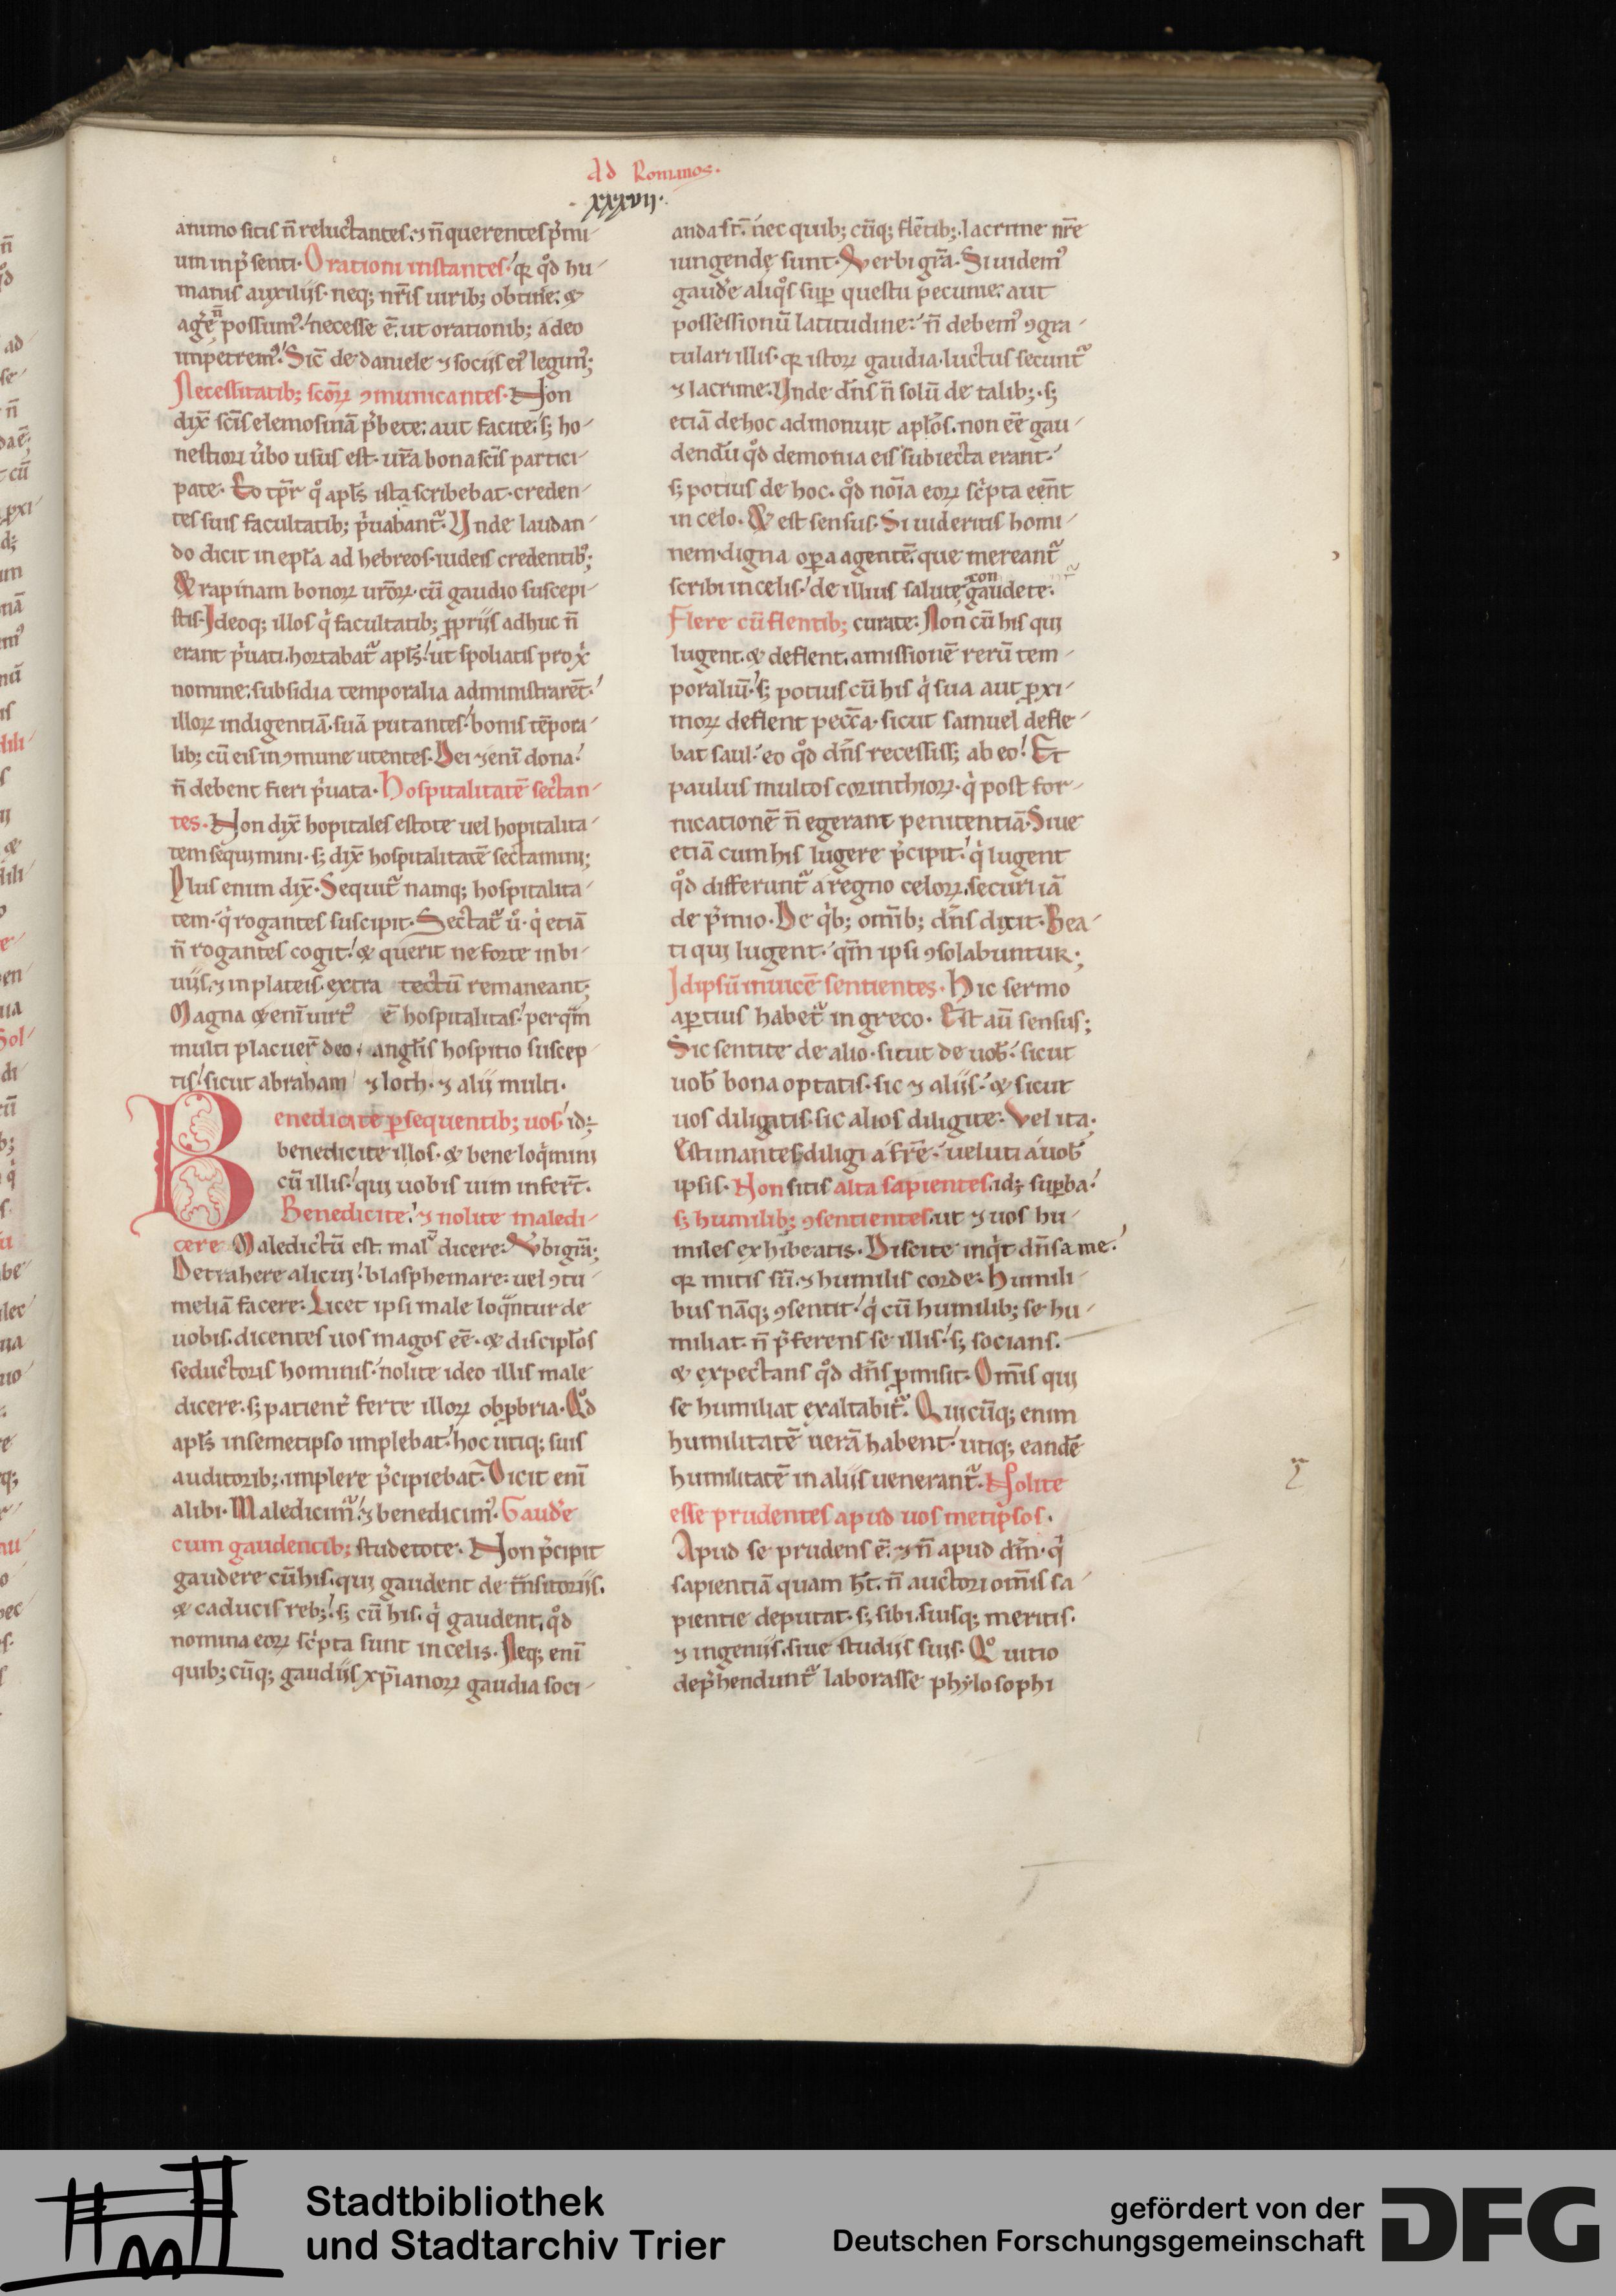 Ad Romanos.
.xxxvij.
animo sitis n̄ reluctantes. ⁊ n̄ querentes p̄mi-
um in p̄senti. Orationi instantes. qꝛ qͦd hu-
manis auxilijs. neq; nr̄is uirib; obtine. &
aḡe n̄ possumꝰ. necesse ē. ut orationib; a deo
impetremꝰ. Sic̄ de daniele ⁊ socijs eiꝰ legimꝰ;
Necessitatib; sc̄oꝝ ꝯmunicantes. Non
dix̄ sc̄is elemosinā p̄bete. aut facite. s; ho-
nestiori ūbo usus est. ur̄a bona sc̄is partici-
pate. Eo tp̄r qͦ apl̄s ista scribebat. creden-
tes suis facultatib; p̄uabant᷑. Vnde laudan-
do dicit in epl̄a ad hebreos. iudeis credentibꝰ;
Et rapinam bonoꝝ ur̄oꝝ. cū gaudio suscepi-
stis. Ideoq; illos q̇ facultatib; ꝓprijs adhuc n̄
erant p̄uati. hortabat᷑ apl̄s. ut spoliatis pro x̄
nomine. subsidia temporalia administrarēt.
illoꝝ indigentiā. suā putantes. bonis tēpora-
lib; cū eis in ꝯmune utentes. Dei ⁊enī dona.
n̄ debent fieri p̄uata. Hospitalitatē sectan-
tes. Non dix̄ hopitales estote uel hopitalita-
tem sequimini. s; dix̄ hospitalitatē sectamini;
Plus enim dix̄. Sequit᷑ namq; hospitalita-
tem. q̇ rogantes suscipit. Sectat᷑ ū̊. q̇ etiā
n̄ rogantes cogit. & querit ne forte in bi-
uijs. ⁊ in plateis. extra tectū remaneant;
Magna &enī uirtꝰ ē hospitalitas. per qm̄
multi placuer̄ deo. angl̄is hospitio suscep
tis. sicut abraham ⁊ loth. ⁊ alij multi.
Benedicite ꝑsequentib; uos. id;÷
benedicite illos. & bene loq̇mini
cū illis. qui uobis uim infer̄t.
Benedicite. ⁊ nolite maledi-
cere Maledictū est. mal᷑ dicere. Vbi gr̄a;
Detrahere alicui. blasphemare. uel ꝯtu-
meliā facere. Licet ipsi male loqͣntur de
uobis. dicentes uos magos eē. & discipl̄os
seductoris hominis. nolite ideo illis male
dicere. s; patient᷑ ferte illoꝝ obꝓbria. Qͦd
apl̄s in semetipso implebat. hoc utiq; suis
auditorib;. implere p̄cipiebat. Dicit enī
alibi. Maledicim᷑. ⁊ benedicimꝰ. Gaude
cum gaudentib; studetote. Non p̄cipit
gaudere cū his. qui gaudent de tn̄sitorijs.
& caducis reb;. s; cū his. q̇ gaudent. qͦd
nomina eoꝝ sc̄pta sunt in celis. Neq; enī
quib; cūq; gaudijs xp̄ianoꝝ gaudia soci-
anda st̄. nec quib; cūq; flētib;. lacrime nr̄e
iungendę sunt. Verbi gr̄a. Si uidemꝰ
gaud̄e aliqͦs suꝑ questu pecunie. aut
possessionū latitudine. n̄ debemꝰ ꝯgra-
tulari illis. qꝛ istoꝝ gaudia. luctus secunt᷑
⁊ lacrime. Vnde dn̄s n̄ solū de talib;. s;
etiā de hoc admonuit apl̄os. non eē gau-
dendū qͦd demonia eis subiecta erant.
s; potius de hoc. qͦd noīa eoꝝ sc̄pta eēnt
in celo. Et est sensus. Si uideritis homi-
nem. digna oꝑa agentē. que mereant᷑
scribi in celis. de illius salute gaudete.
Flere cū flentib; curate. Non cū his qui
lugent. & deflent. amissionē rerū tem-
poraliū. s; potius cū his q̇ sua aut ꝓxi-
moꝝ deflent pecc̄a. sicut samuel defle-
bat saul. eo qͦd dn̄s recessiss; ab eo. Et
paulus multos corinthioꝝ. q̇ post for-
nicationē n̄ egerant penitentiā. Siue
etiā cum his lugere p̄cipit. q̇ lugent
qͦd differunt᷑ a regno celoꝝ. securi iā
de p̄mio. De q̇b; omīb; dn̄s dicit. Bea-
ti qui lugent. qm̄ ipsi ꝯsolabuntur;
Idipsū inuicē sentientes. Hic sermo
aꝑtius habet᷑ in greco. Est aū sensus;
Sic sentite de alio. sicut de uob̄. sicut
uob̄ bona optatis. sic ⁊ alijs. & sicut
uos diligatis. sic alios diligite. Vel ita;
Estimantes diligi a fr̄e. ueluti a uob̄
ipsis. Non sitis alta sapientes. id; suꝑba.
s; humilib; ꝯsentientes. ut ⁊ uos hu-
miles exhibeatis. Discite inq̇t dn̄s a me.
qꝛ mitis sū. ⁊ humilis corde. Humili-
bus nāq; ꝯsentit. q̇ cū humilib; se hu-
miliat. n̄ p̄ferens se illis. s; socians.
& expectans qͦd dn̄s ꝓmisit. Om̄is qui
se humiliat exaltabit᷑. Quicūq; enim
humilitatē uerā habent. utiq; eandē
humilitatē in alijs uenerant᷑. Nolite
esse prudentes apud uos metipsos.
Apud se prudens ē. ⁊ n̄ apud dm̄. q̇
sapientiā quam h̄t. n̄ auctori om̄is sa-
pientie deputat. s; sibi. suisq; meritis.
⁊ ingenijs. siue studijs suis. Qͦ uitio
dep̄hendunt᷑ laborasse phylosophi
Stadtbibliothek
und Stadtarchiv Trier
gefördert von der
Deutschen Forschungsgemeinschaft
DFG